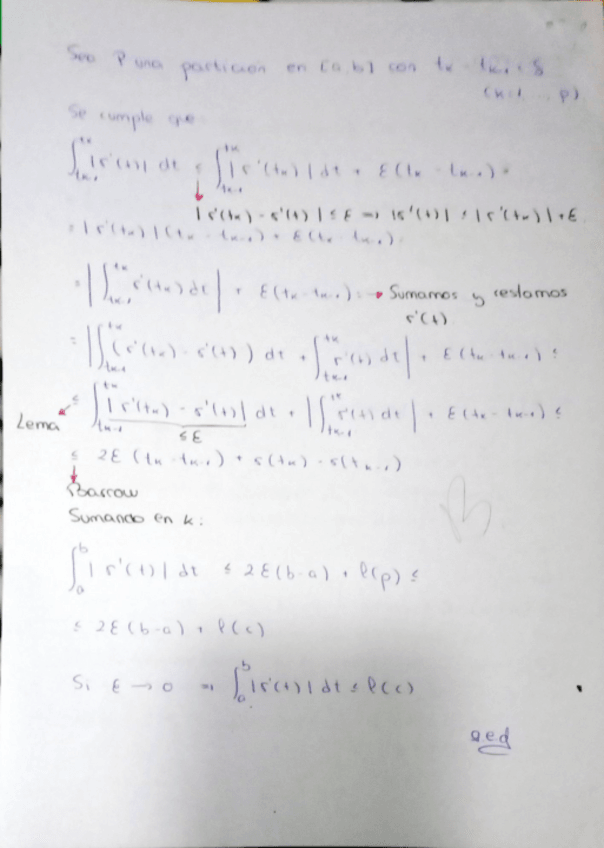 Sea P una partición en [a,b] con tₖ - tₖ₋₁ < δ
(k=1 ... p)
Se cumple que
∫_{tₖ₋₁}^{tₖ} |s'(t)| dt ≤ ∫_{tₖ₋₁}^{tₖ} |s'(tₖ)| dt + ε(tₖ - tₖ₋₁) =
|s'(tₖ) - s'(t)| ≤ ε ⇒ |s'(t)| ≤ |s'(tₖ)| + ε
= |s'(tₖ)|(tₖ - tₖ₋₁) + ε(tₖ - tₖ₋₁) =
= |∫_{tₖ₋₁}^{tₖ} s'(tₖ) dt| + ε(tₖ - tₖ₋₁) = → Sumamos y restamos
s'(t)
= |∫_{tₖ₋₁}^{tₖ} (s'(tₖ) - s'(t)) dt + ∫_{tₖ₋₁}^{tₖ} s'(t) dt| + ε(tₖ - tₖ₋₁) ≤
Lema ≤ ∫_{tₖ₋₁}^{tₖ} |s'(tₖ) - s'(t)| dt + |∫_{tₖ₋₁}^{tₖ} s'(t) dt| + ε(tₖ - tₖ₋₁) ≤
≤ ε
≤ 2ε(tₖ - tₖ₋₁) + s(tₖ) - s(tₖ₋₁)
Barrow
Sumando en k:
∫_a^b |s'(t)| dt ≤ 2ε(b-a) + ℓ(p) ≤
≤ 2ε(b-a) + ℓ(c)
Si ε → 0 ⇒ ∫_a^b |s'(t)| dt ≤ ℓ(c)
q.e.d